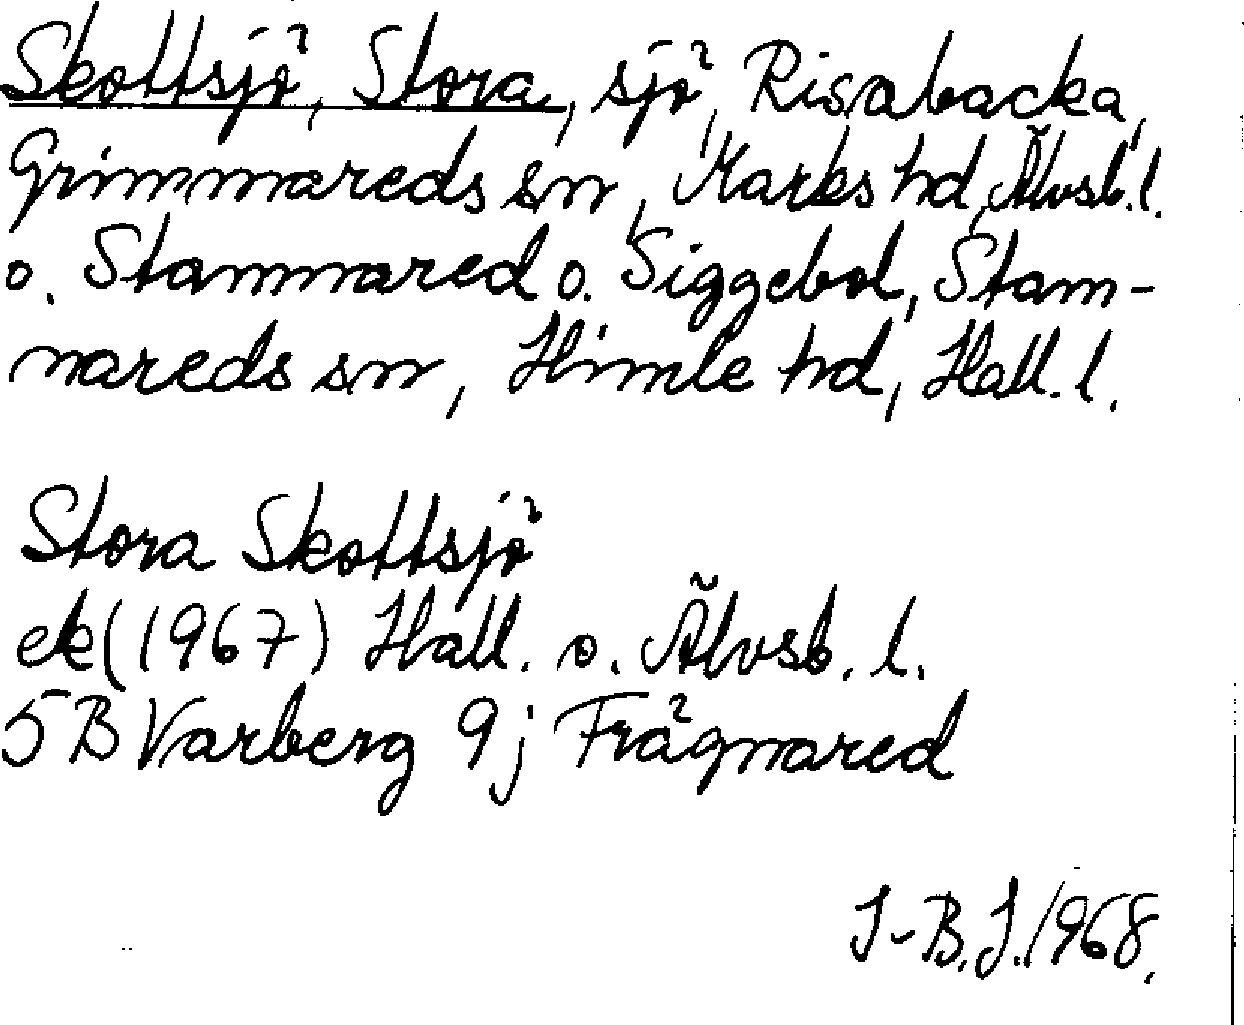 Skottsjö, Stora, sjö, Risabacka,
Grimmareds sn, Marks hd, Älvsb. l.
o. Stammared o. Siggebol, Stam-
nareds sn, Himle hd, Hall. l.
Stora Skottsjö
ek (1967) Hall. o. Älvsb. l.
5B Varberg 9j Frägnared
I-B.J. 1968.